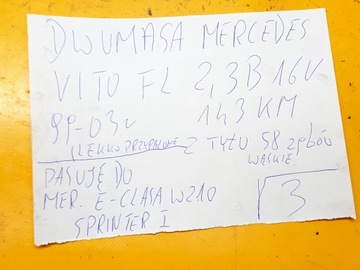 DWUMASA MERCEDES
VITO FL 2,3B 16V
99-03r 143 KM
(LEKKO PRZYPALONE Z TYŁU 58 zębów
WĄSKIE
PASUJĘ DO
MER. E-CLASA W210
SPRINTER I
3